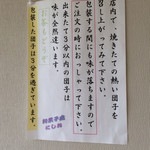 店内で、焼きたての熱い団子を
召し上がってみて下さい。
包装する間にも味が落ちますので
ご注文の時におっしゃって下さい。
出来たて3分以内の団子は
味が全然違います。
包装した団子は3分を過ぎています。